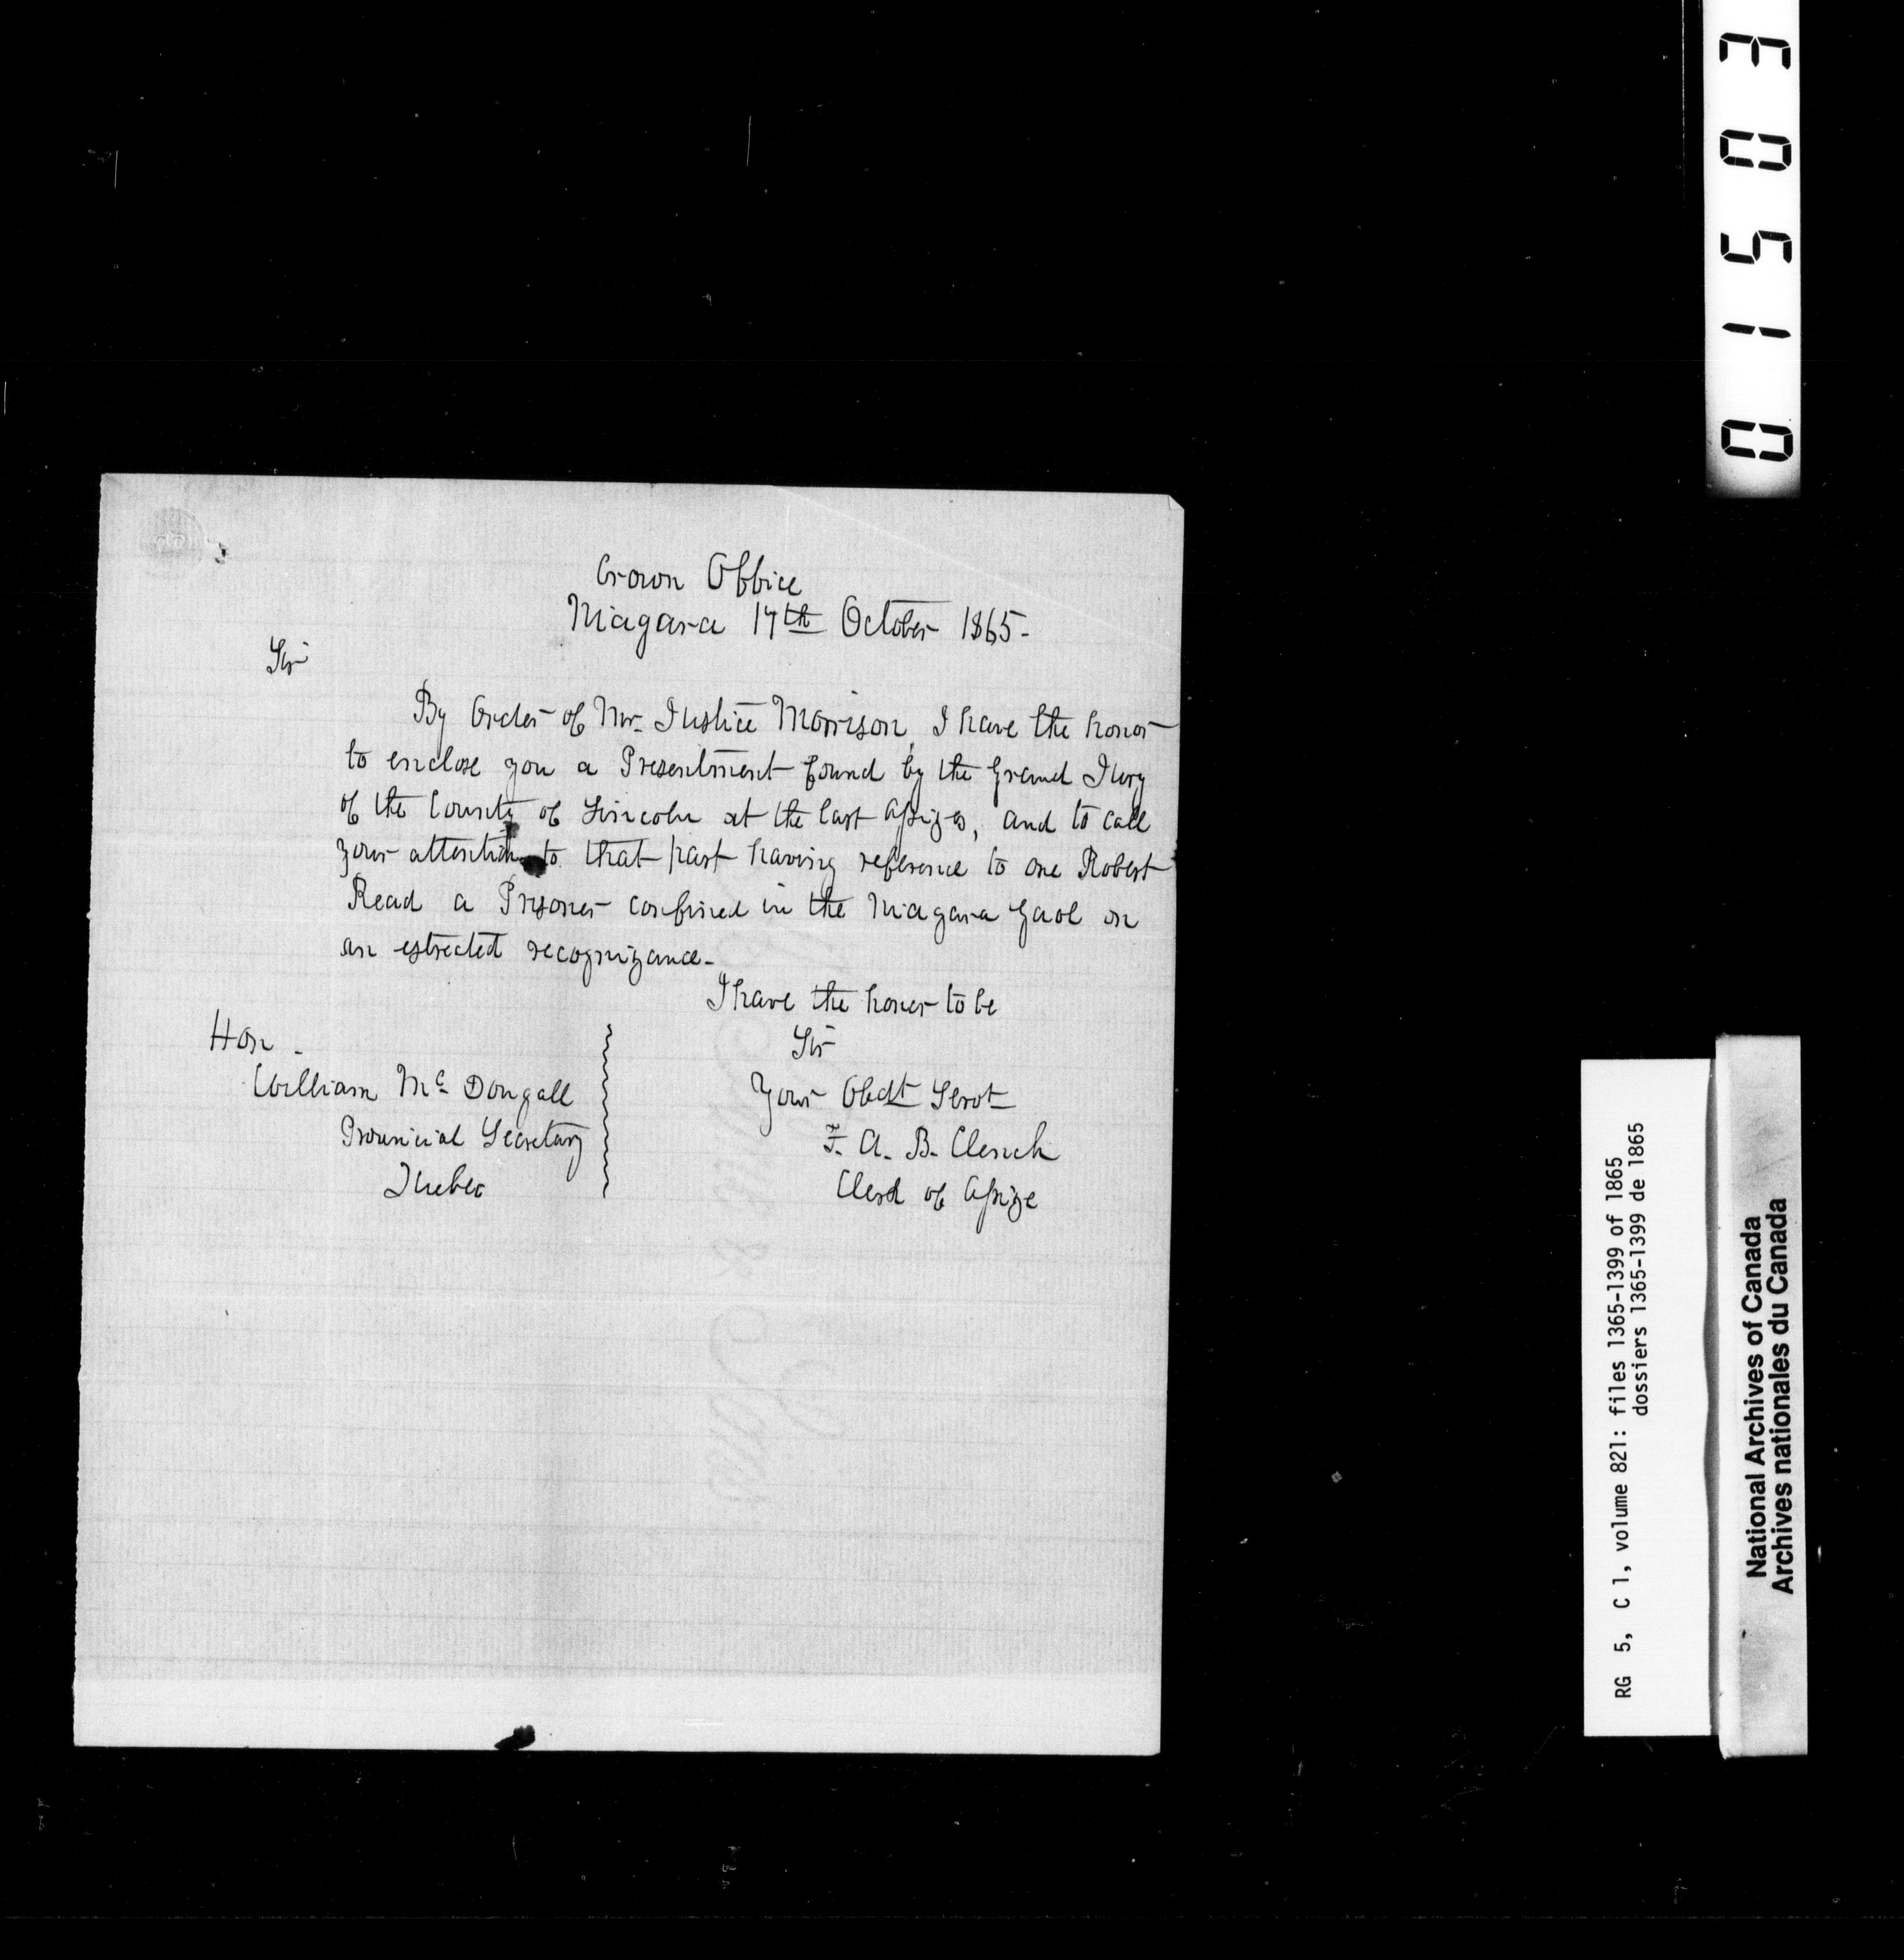 Crown Office
Niagara 17th October 1865-
Sir
By Order of Mr. Justice Morrison, I have the honor
to enclose you a Presentment found by the Grand Jury
of the County of Lincoln at the last Assizes, and to call
your attention to that part having reference to one Robert
Read a Prisoner confined in the Niagara Gaol on
an estreated recognizance-
I have the honor to be
Sir
Your Obedt Servt
F. A. B. Clench
Clerk of Assize
Hon.
William Mc Dougall
Provincial Secretary
Quebec
01503
RG 5, C 1, volume 821: files 1365-1399 of 1865
dossiers 1365-1399 de 1865
National Archives of Canada
Archives nationales du Canada